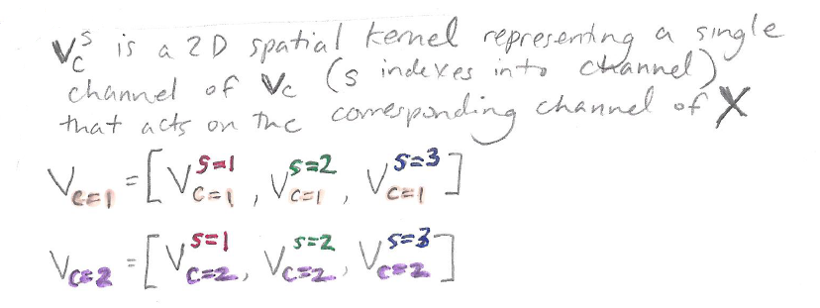 V_c^s is a 2D spatial kernel representing a single
channel of V_c (s indexes into channel)
that acts on the corresponding channel of X
V_{c=1} = [V_{c=1}^{s=1}, V_{c=1}^{s=2}, V_{c=1}^{s=3}]
V_{c=2} = [V_{c=2}^{s=1}, V_{c=2}^{s=2}, V_{c=2}^{s=3}]